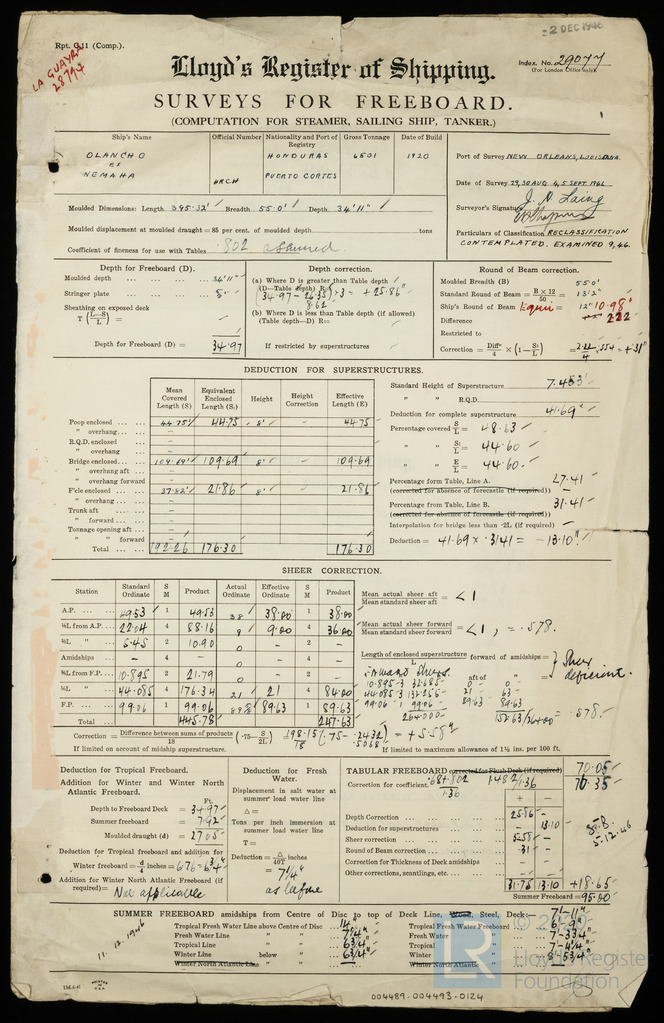 Rpt. C.11 (Comp.)
2 DEC 1946
LA GUAYRA
Index. No. 29077
(For London Office only).
Lloyd's Register of Shipping.
SURVEYS FOR FREEBOARD.
(COMPUTATION FOR STEAMER, SAILING SHIP, TANKER.)
Ship's Name Official Number Nationality and Port of Registry Gross Tonnage Date of Build
OLANCHO HONDURAS 6501 1920
ex
NEMAHA PUERTO CORTES
Port of Survey NEW ORLEANS, LOUISIANA.
Date of Survey 29,30 AUG 4,5 SEPT 1946
Surveyor's Signature J. A Laing
Particulars of Classification RECLASSIFICATION
CONTEMPLATED. EXAMINED 9,46.
Moulded Dimensions: Length 395.32' Breadth 55.0' Depth 34'11"
Moulded displacement at moulded draught = 85 per cent. of moulded depth tons
Coefficient of fineness for use with Tables .802 assumed.
Depth for Freeboard (D).
Moulded depth 34'11"
Stringer plate
Sheathing on exposed deck
T (L-S/L) =
Depth for Freeboard (D) = 34.97
Depth correction.
(a) Where D is greater than Table depth
(D-Table depth) R=
(34.97 - 26.35) × 3 = + 25.86"
8.62
(b) Where D is less than Table depth (if allowed)
(Table depth-D) R=
If restricted by superstructures
Round of Beam correction.
Moulded Breadth (B) 55.0'
Standard Round of Beam = B × 12/50 = 13.2"
Ship's Round of Beam = 12" 10.98"
Difference 2.22
Restricted to
Correction = Diff/4 × (1 - S1/L) = 2.22/4 × .554 = +.31"
DEDUCTION FOR SUPERSTRUCTURES.
Mean Covered Length (S) Equivalent Enclosed Length (S1) Height Height Correction Effective Length (E)
Poop enclosed 44.75 44.75 8' - 44.75
" overhang
R.Q.D. enclosed
" overhang
Bridge enclosed 109.69' 109.69 8' - 109.69
" overhang aft
" overhang forward
F'cle enclosed 37.82' 21.86 8' - 21.86
Trunk aft
" forward
Tonnage opening aft
" " forward
Total 192.26 176.30 176.30
Standard Height of Superstructure 7.453'
" " R.Q.D.
Deduction for complete superstructure 41.69"
Percentage covered S/L = 48.63
" " S1/L = 44.60
" " E/L = 44.60
Percentage from Table, Line A. 27.41
(corrected for absence of forecastle (if required))
Percentage from Table, Line B. 31.41
(corrected for absence of forecastle (if required))
Interpolation for bridge less than ·2L (if required)
Deduction = 41.69 × .3141 = -13.10"
SHEER CORRECTION.
Station Standard Ordinate S M Product Actual Ordinate Effective Ordinate S M Product
A.P. 49.53 1 49.53 38 38.00 1 38.00
⅙L from A.P. 22.04 4 88.16 9 9.00 4 36.00
⅓L " 5.45 2 10.90 0 - 2 -
Amidships - 4 - 0 - 4 -
⅓L from F.P. 10.895 2 21.79 0 - 2 -
⅙L " 44.085 4 176.34 21 21 4 84.00
F.P. 99.06 1 99.06 89.63 1 89.63
Total 445.78 247.63
Mean actual sheer aft / Mean standard sheer aft = <1
Mean actual sheer forward / Mean standard sheer forward = <1, = .578.
Length of enclosed superstructure forward of amidships = / L
" " aft of " =
Sheer deficient.
Forward Sheer.
10.895.3 32.685 0 0
44.085.3 132.255 21 63
99.06.1 99.06 89.63 89.63
264.000 152.63/264.00 = .578.
Correction = Difference between sums of products/18 (·75 - S/2L) = 198.15/18 (.75 - .2432) = + 5.58"
.5068
If limited on account of midship superstructure. If limited to maximum allowance of 1½ ins. per 100 ft.
Deduction for Tropical Freeboard.
Addition for Winter and Winter North Atlantic Freeboard.
Ft.
Depth to Freeboard Deck = 34.97
Summer freeboard = 7.92
Moulded draught (d) = 27.05
Deduction for Tropical freeboard and addition for
Winter freeboard = d/4 inches = 6.76 = 6¾"
Addition for Winter North Atlantic Freeboard (if required) =
Not applicable
Deduction for Fresh Water.
Displacement in salt water at summer load water line
Δ =
Tons per inch immersion at summer load water line
T =
Deduction = Δ/40T inches
= 7¼"
as before
TABULAR FREEBOARD corrected for Flush Deck (if required) 70.05
Correction for coefficient. .68+.802/1.36 1.482/1.36 76.35
+ -
Depth Correction 25.86
Deduction for superstructures 13.10
Sheer correction 5.58
Round of Beam correction .31
Correction for Thickness of Deck amidships
Other corrections, scantlings, etc.
31.75 13.10 +18.65
Summer Freeboard = 95.00
5.12.46
SUMMER FREEBOARD amidships from Centre of Disc to top of Deck Line, Wood, Steel, Deck: 7'-11"
Tropical Fresh Water Line above Centre of Disc 14" Tropical Fresh Water Freeboard 6'-9"
Fresh Water Line " " 7¼" Fresh Water " 7'-3¾"
Tropical Line " " 6¾" Tropical " 7'-4¼"
Winter Line below " " 6¾" Winter " 8'-5¾"
Winter North Atlantic Line " " Winter North Atlantic "
11.12.1946
004489-004493-0124
Lloyd's Register
Foundation